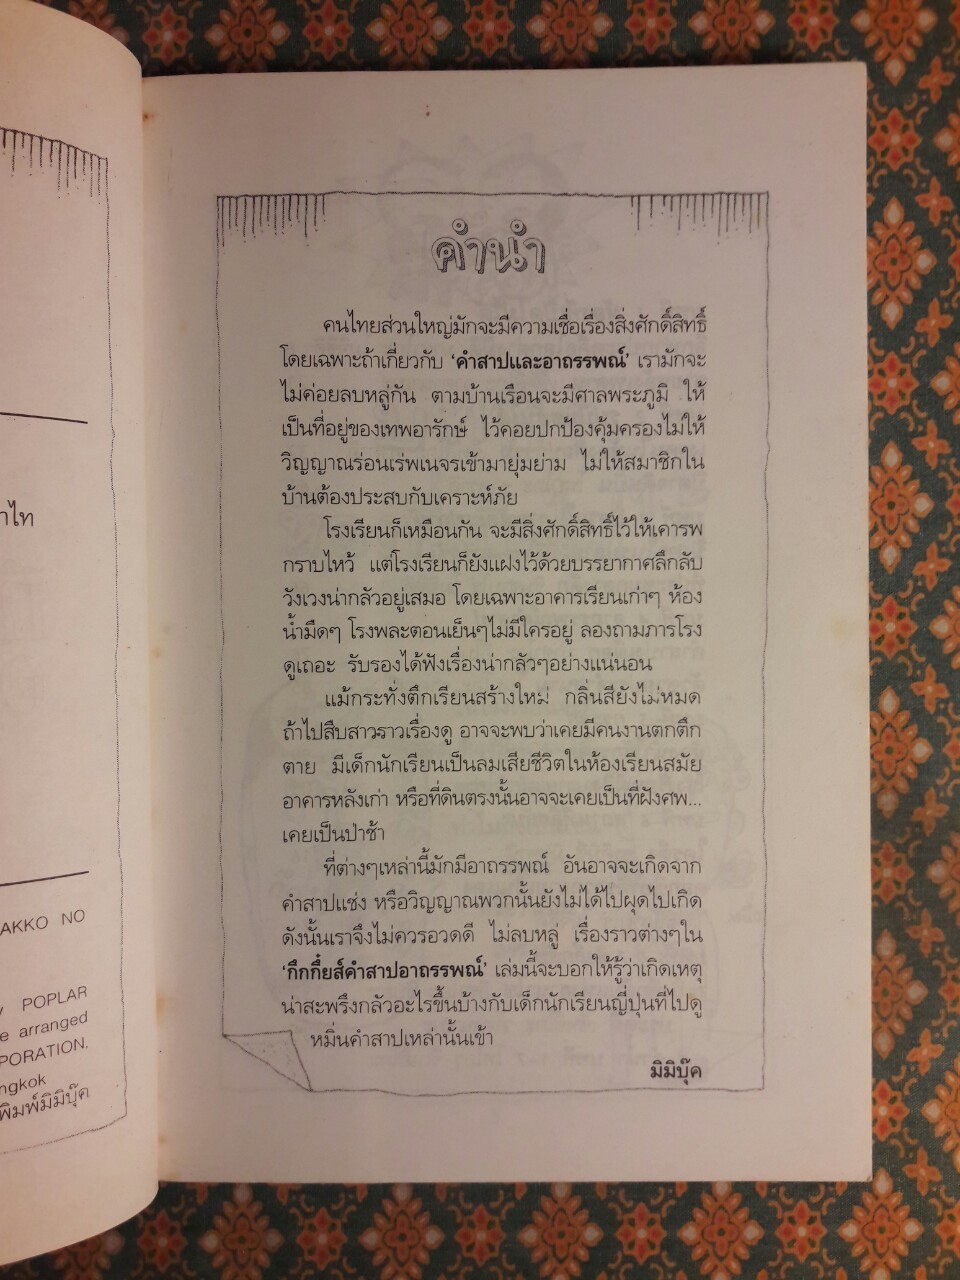 าไท
AKKO NO
POPLAR
e arranged
PORATION,
ngkok
พิมพ์มิมิบุ๊ค
คำนำ
คนไทยส่วนใหญ่มักจะมีความเชื่อเรื่องสิ่งศักดิ์สิทธิ์
โดยเฉพาะถ้าเกี่ยวกับ ‘คำสาปและอาถรรพณ์’ เรามักจะ
ไม่ค่อยลบหลู่กัน ตามบ้านเรือนจะมีศาลพระภูมิ ให้
เป็นที่อยู่ของเทพอารักษ์ ไว้คอยปกป้องคุ้มครองไม่ให้
วิญญาณร่อนเร่พเนจรเข้ามายุ่มย่าม ไม่ให้สมาชิกใน
บ้านต้องประสบกับเคราะห์ภัย
โรงเรียนก็เหมือนกัน จะมีสิ่งศักดิ์สิทธิ์ไว้ให้เคารพ
กราบไหว้ แต่โรงเรียนก็ยังแฝงไว้ด้วยบรรยากาศลึกลับ
วังเวงน่ากลัวอยู่เสมอ โดยเฉพาะอาคารเรียนเก่าๆ ห้อง
น้ำมืดๆ โรงพละตอนเย็นๆไม่มีใครอยู่ ลองถามภารโรง
ดูเถอะ รับรองได้ฟังเรื่องน่ากลัวๆอย่างแน่นอน
แม้กระทั่งตึกเรียนสร้างใหม่ กลิ่นสียังไม่หมด
ถ้าไปสืบสาวราวเรื่องดู อาจจะพบว่าเคยมีคนงานตกตึก
ตาย มีเด็กนักเรียนเป็นลมเสียชีวิตในห้องเรียนสมัย
อาคารหลังเก่า หรือที่ดินตรงนั้นอาจจะเคยเป็นที่ฝังศพ...
เคยเป็นป่าช้า
ที่ต่างๆเหล่านี้มักมีอาถรรพณ์ อันอาจจะเกิดจาก
คำสาปแช่ง หรือวิญญาณพวกนั้นยังไม่ได้ไปผุดไปเกิด
ดังนั้นเราจึงไม่ควรอวดดี ไม่ลบหลู่ เรื่องราวต่างๆใน
‘กึกกึ๋ยส์คำสาปอาถรรพณ์’ เล่มนี้จะบอกให้รู้ว่าเกิดเหตุ
น่าสะพรึงกลัวอะไรขึ้นบ้างกับเด็กนักเรียนญี่ปุ่นที่ไปดู
หมิ่นคำสาปเหล่านั้นเข้า
มิมิบุ๊ค